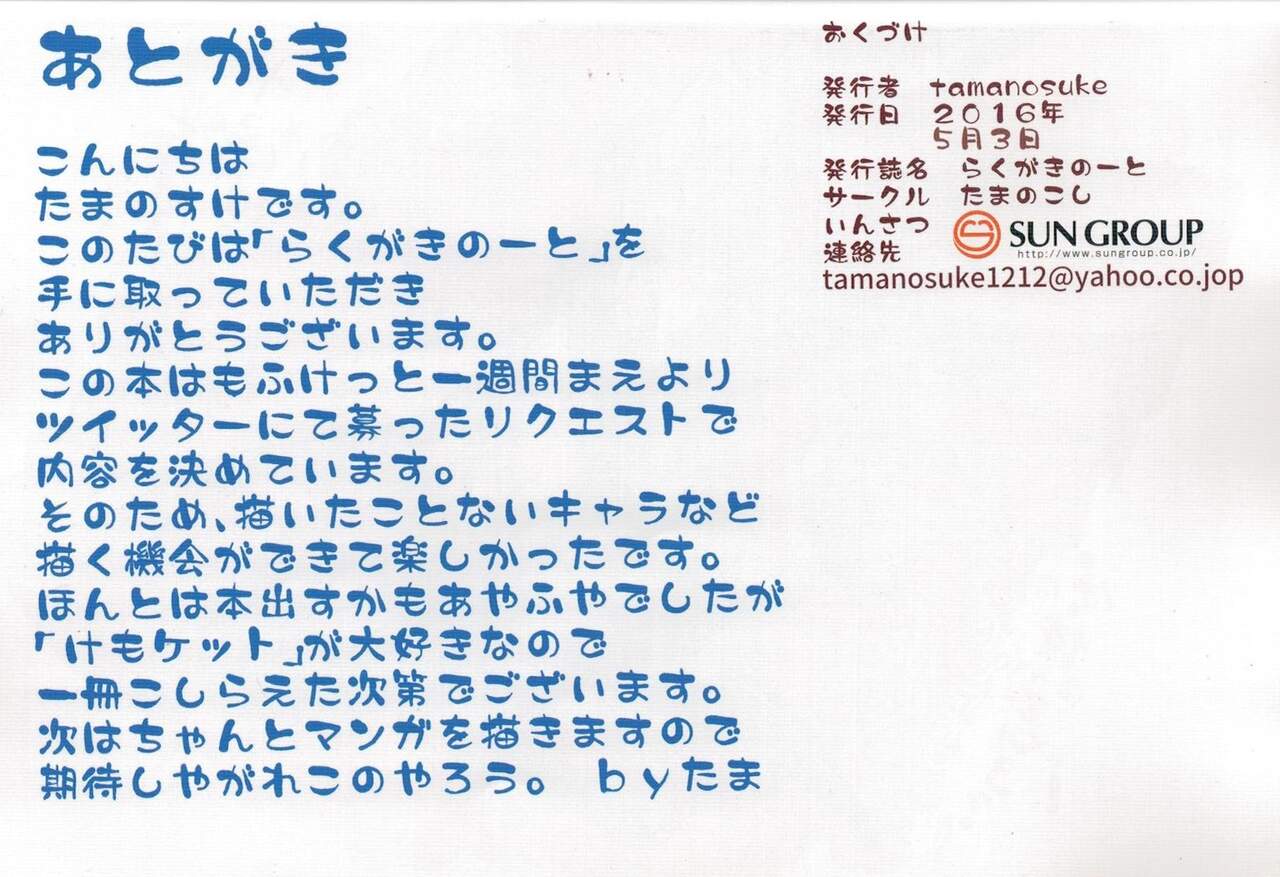 あとがき
こんにちは
たまのすけです。
このたびは「らくがきのーと」を
手に取っていただき
ありがとうございます。
この本はもふけっと一週間まえより
ツイッターにて募ったリクエストで
内容を決めています。
そのため、描いたことないキャラなど
描く機会ができて楽しかったです。
ほんとは本出すかもあやふやでしたが
「けもケット」が大好きなので
一冊こしらえた次第でございます。
次はちゃんとマンガを描きますので
期待しやがれこのやろう。 byたま
おくづけ
発行者 tamanosuke
発行日 2016年
5月3日
発行誌名 らくがきのーと
サークル たまのこし
いんさつ SUN GROUP
http://www.sungroup.co.jp/
連絡先
tamanosuke1212@yahoo.co.jop